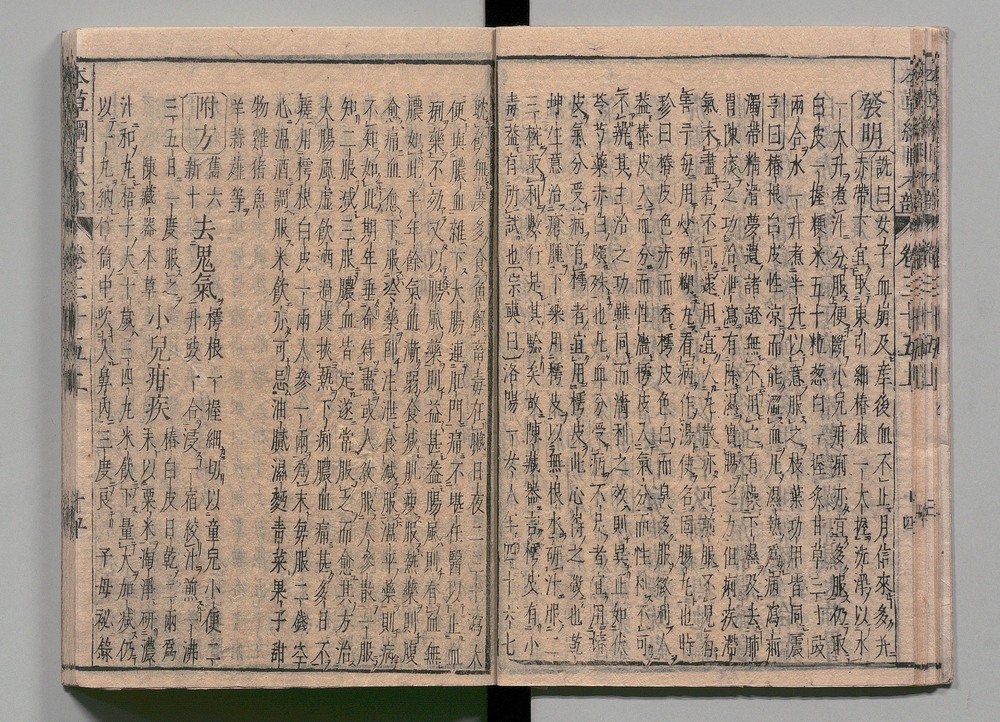 發明 詵曰女子血崩及產後血不止月信來多并
赤帶下宜取東引細椿根一大握洗淨以水
一大升煮汁分服便斷小兒疳痢亦宜多服仍取
白皮一握粳米五十粒葱白一握炙甘草三寸豉
兩合水一升煮半升以意服之枝葉功用皆同震
亨曰椿根白皮性涼而能濇血凡濕熱爲病瀉痢
濁帶精滑夢遺諸證無不用之有燥下濕及去肺
胃陳痰之功治泄瀉有除濕實腸之力但痢疾滯
氣未盡者不可遽用宜入丸散亦可煎服不見有
害予每用炒研糊丸看病作湯使名固腸丸也時
珍曰椿皮色赤而香樗皮色白而臭多服微利人
蓋椿皮入血分而性濇樗皮入氣分而性利不可
不辨其主治之功雖同而濇利之效則異正如茯
苓芍藥赤白頗殊也凡血分受病不足者宜用椿
皮氣分受病有鬱者宜用樗皮此心得之微也
乾坤生意治瘡腫下藥用樗皮以無根水研汁服二
三椀取利數行是其驗矣故陳藏器言樗皮有小
毒蓋有所試也宗奭曰洛陽一女人年四十六七
耽飲無度多食魚蟹畜毒在臟日夜二三十瀉人
便與膿血雜下大腸連肛門痛不堪任醫以止血
痢藥不效又以腸風藥則益甚蓋腸風則有血無
膿如此半年餘氣血漸弱食減肌瘦服熱藥則腹
愈痛血愈下服冷藥則注泄食減服溫平藥則病
不知如此期年垂命待盡或人教服人參散一服
知二服減三服膿血皆定遂常服之而愈其方治
大腸風虛飲酒過度挾熱下痢膿血痛甚多日不
瘥用樗根白皮一兩人參一兩爲末每服二錢空
心溫酒調服米飲亦可忌油膩濕麵青菜果子甜
物雞猪魚
羊蒜薤等
附方 舊六新十 去鬼氣樗根一握細切以童兒小便二
升豉一合浸一宿絞汁煎一沸
三五日一度服之
陳藏器本草 小兒疳疾椿白皮日乾二兩爲
末以粟米淘淨研濃
汁和丸梧子大十歲三四丸米飲下量人加減仍
以一丸納竹筒中吹入鼻內三度良 子母祕錄